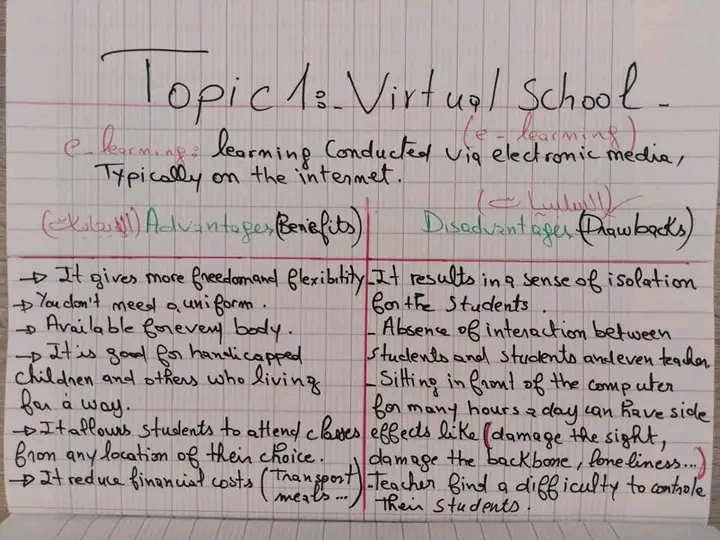 Topic 1:- Virtual School -
(e-learning)
e-learning: learning Conducted via electronic media,
Typically on the internet.
(السلبيات)
(الإيجابيات) Advantages (Benefits)
Disadvantages (Drawbacks)
→ It gives more freedom and flexibility
→ You don't need a uniform.
→ Available for every body.
→ It is good for handicapped
children and others who living
far a way.
→ It allows students to attend classes
from any location of their choice.
→ It reduce financial costs (Transport
meals...)
- It results in a sense of isolation
for the students.
- Absence of interaction between
students and students and even teacher
- Sitting in front of the computer
for many hours a day can have side
effects like (damage the sight,
damage the backbone, loneliness...)
- Teacher find a difficulty to controle
their students.